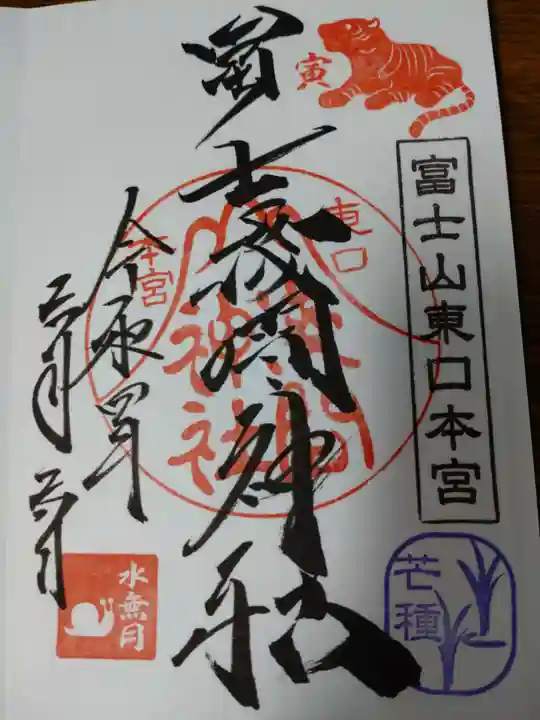 寅
富士山東口本宮
芒種
冨士浅間神社
東口
本宮
浅間
神社
令和四年
六月六日
水無月